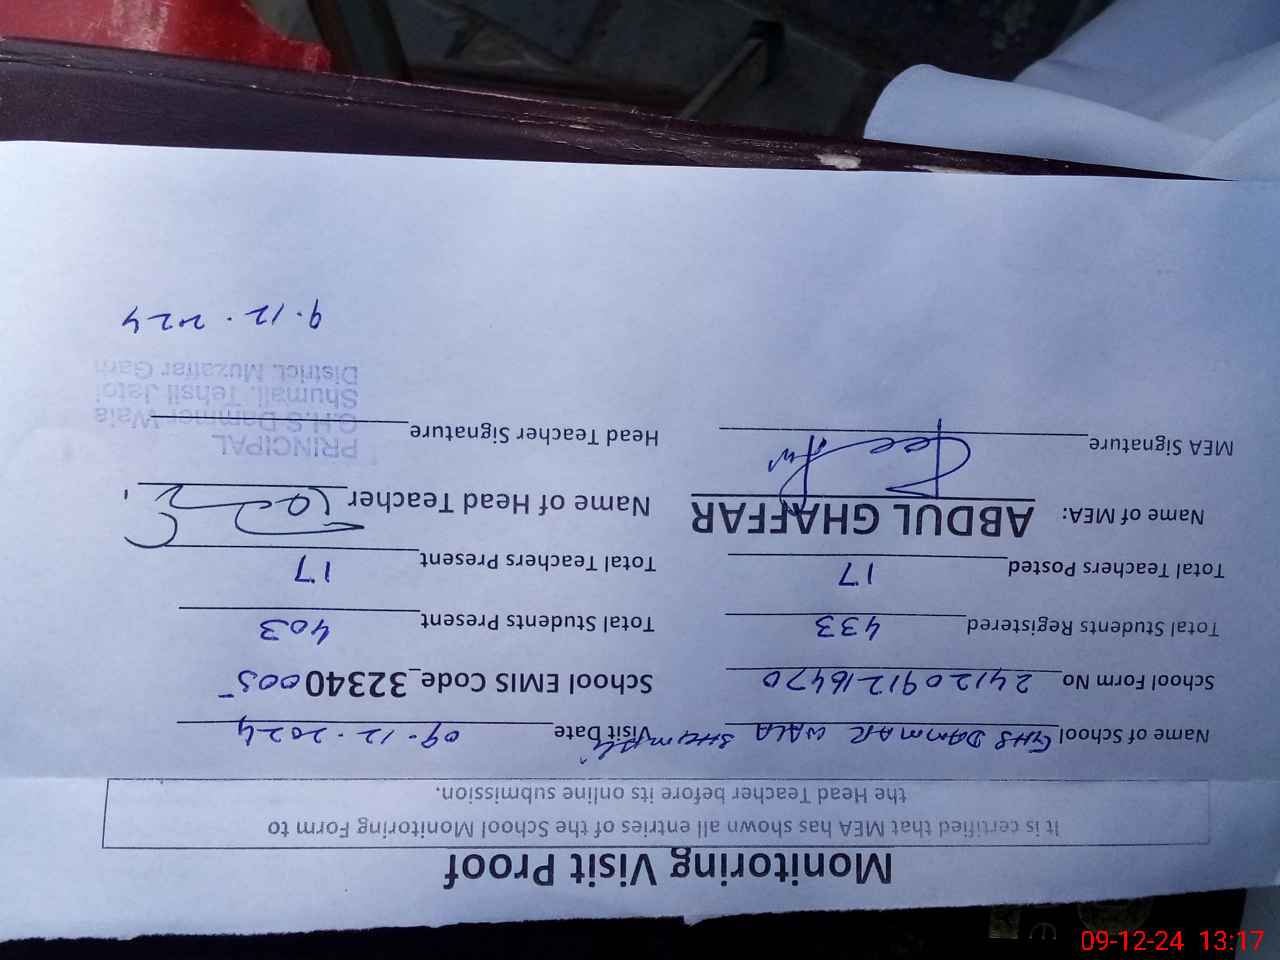 Monitoring Visit Proof
It is certified that MEA has shown all entries of the School Monitoring Form to
the Head Teacher before its online submission.
Name of School GHS DAMMAR WALA SHUMALI Visit Date 09.12.2024
School Form No 2412091216470 School EMIS Code_32340005
Total Students Registered 433 Total Students Present 403
Total Teachers Posted 17 Total Teachers Present 17
Name of MEA: ABDUL GHAFFAR Name of Head Teacher
MEA Signature Head Teacher Signature
PRINCIPAL
G.H.S Dammer Wala
Shumali, Tehsil Jatoi
District, Muzaffar Garh
9.12.2024
09-12-24 13:17